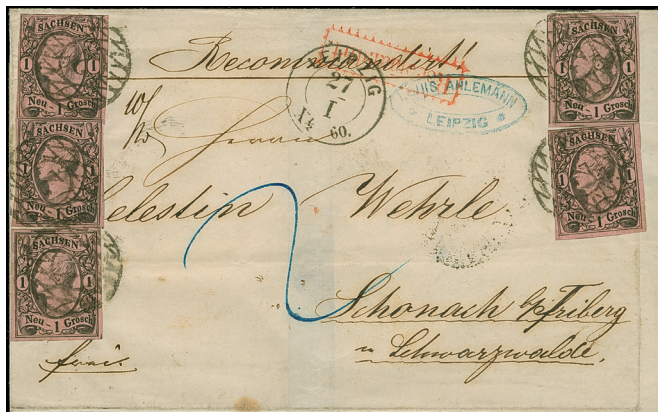 SACHSEN
1 1
Neu - 1 Grosch
SACHSEN
1 1
Neu - 1 Grosch
SACHSEN
1 1
Neu - 1 Grosch
Recommandirt
LEIPZIG
27
I
60.
LOUIS AHLEMANN
LEIPZIG
SACHSEN
1 1
Neu - 1 Grosch
1 1
Neu - 1 Grosch
Herrn
Celestin Wehrle
2
Schonach b/Triberg
Schwarzwalde.
frei.